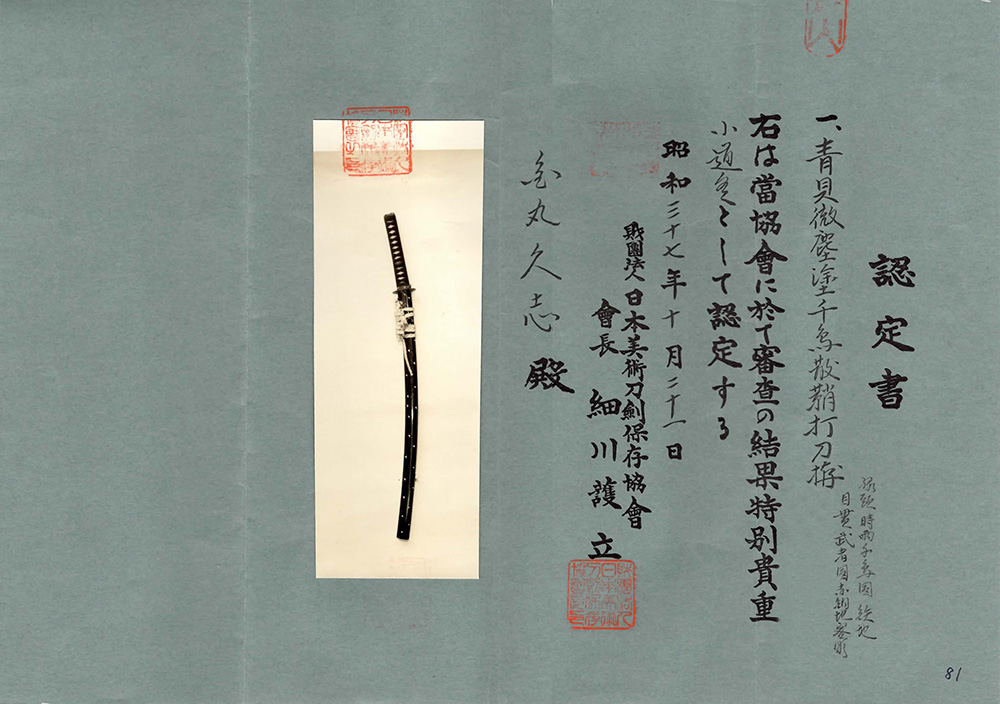 認定書
一、青貝微塵塗千鳥散鞘打刀拵
縁頭時雨千鳥図鉄地
目貫武者図赤銅地容彫
右は當協會に於て審查の結果特別貴重
小道具として認定する
昭和三十七年十月二十一日
財團法人日本美術刀劍保存協會
會長 細川護立
金丸久志殿
81